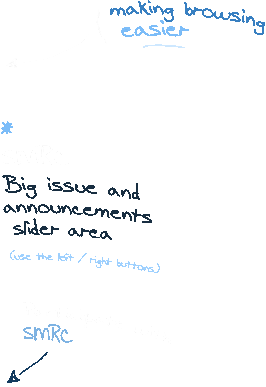 making browsing
easier
*
Big issue and
announcements
slider area
(use the left / right buttons)
smRc